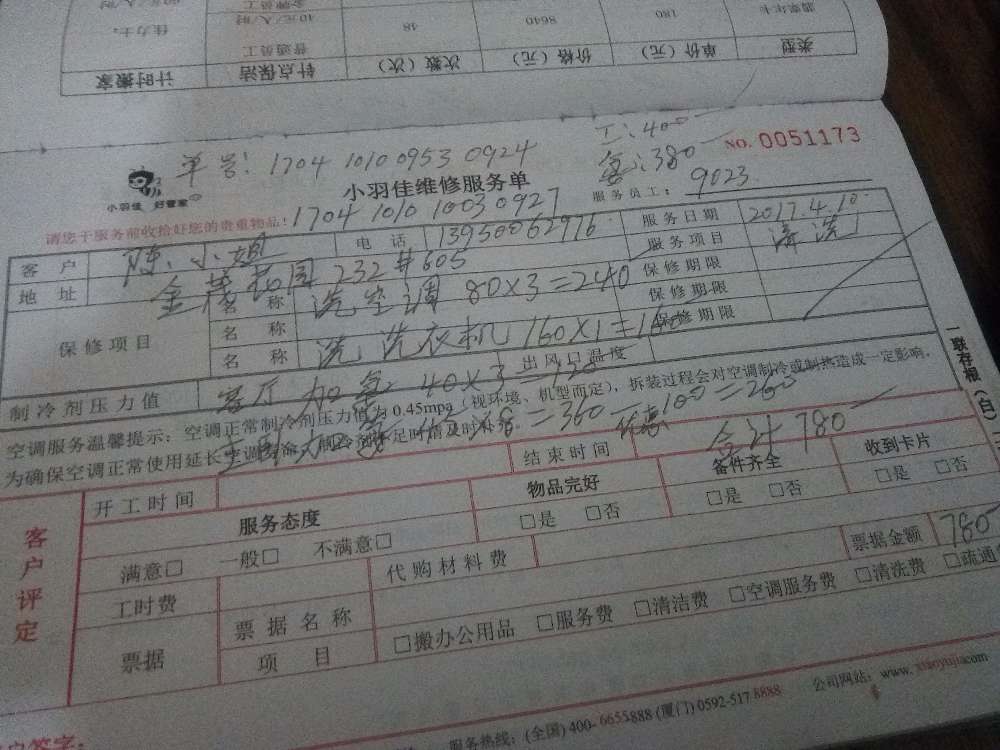 类型 单价（元） 价格（元） 次数（次） 针点保洁 计时搬家
180 8640 48 普通员工 佳力士：
40元/人/时
金牌员工
单号：1704 1010 0953 0924
工：400
氢：380
NO. 0051173
小羽佳 好管家
小羽佳维修服务单
服务员工： 9023
请您于服务前收拾好您的贵重物品！
1704 1010 1003 0927
客户 陈小姐 电话 13950062976 服务日期 2017.4.10
地址 金 花园 232#605 服务项目 清洗
保修项目
名称 洗空调 80×3=240 保修期限
名称 保修期限
名称 洗洗衣机 160×1=160 保修期限
制冷剂压力值 客厅加氢 40×3= 出风口温度
空调服务温馨提示：空调正常制冷剂压力值为0.45mpa（视环境、机型而定），拆装过程会对空调制冷或制热造成一定影响。
为确保空调正常使用延长空调 足时请及时补
=360 优惠100=260
合计780
一联存根（白）
客户评定
开工时间 结束时间
服务态度 物品完好 备件齐全 收到卡片
满意□ 一般□ 不满意□ □是 □否 □是 □否 □是 □否
工时费 代购材料费 票据金额 780
票据 票据名称
项目 □搬办公用品 □服务费 □清洁费 □空调服务费 □清洗费 □疏通
服务热线：(全国) 400-6655888 (厦门) 0592-517 8888 公司网站：www.xiaoyujia.com
户签字：